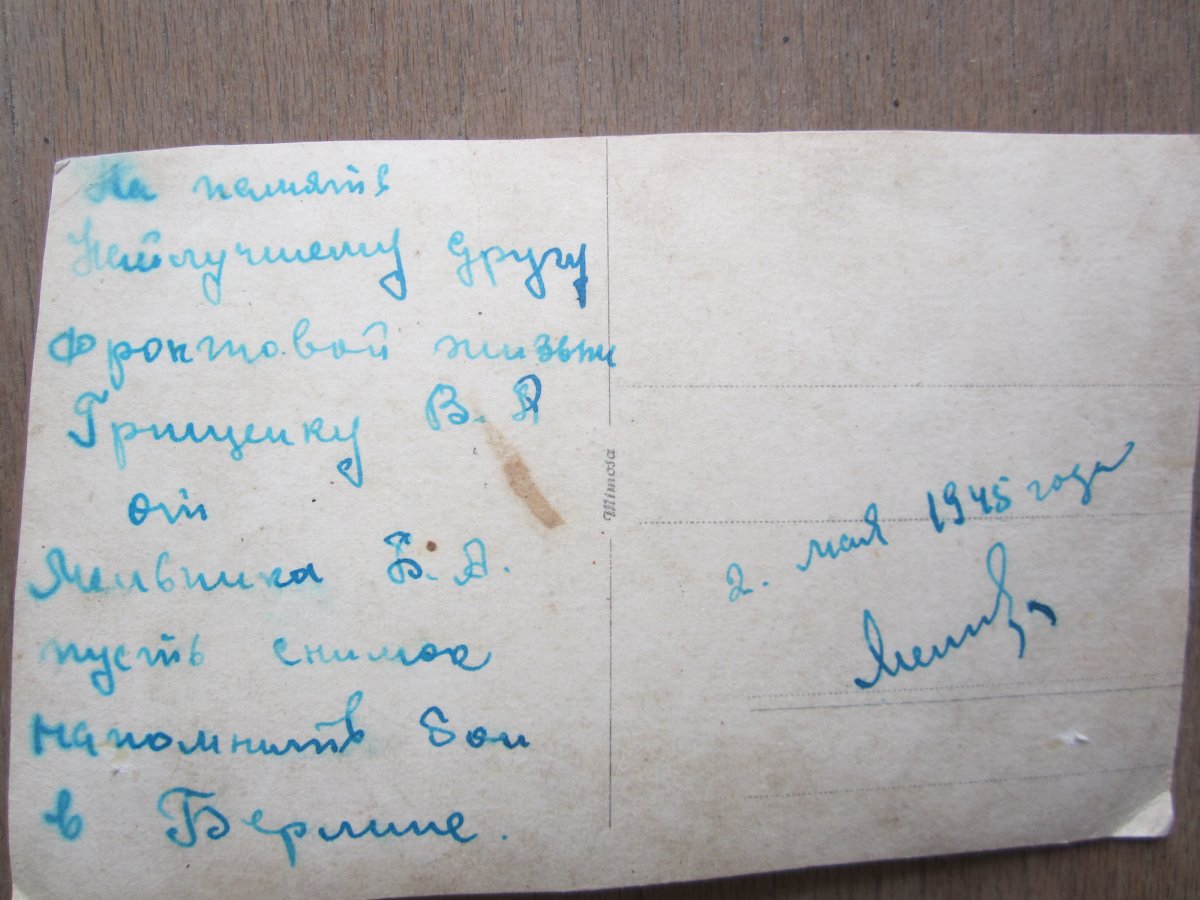 На память
Найлучшему другу
фронтовой жизьни
Грищенку В. Я
от
Мельника Б. А.
пусть снимок
напомнить бои
в Берлине.
Mimosa
2. мая 1945 года